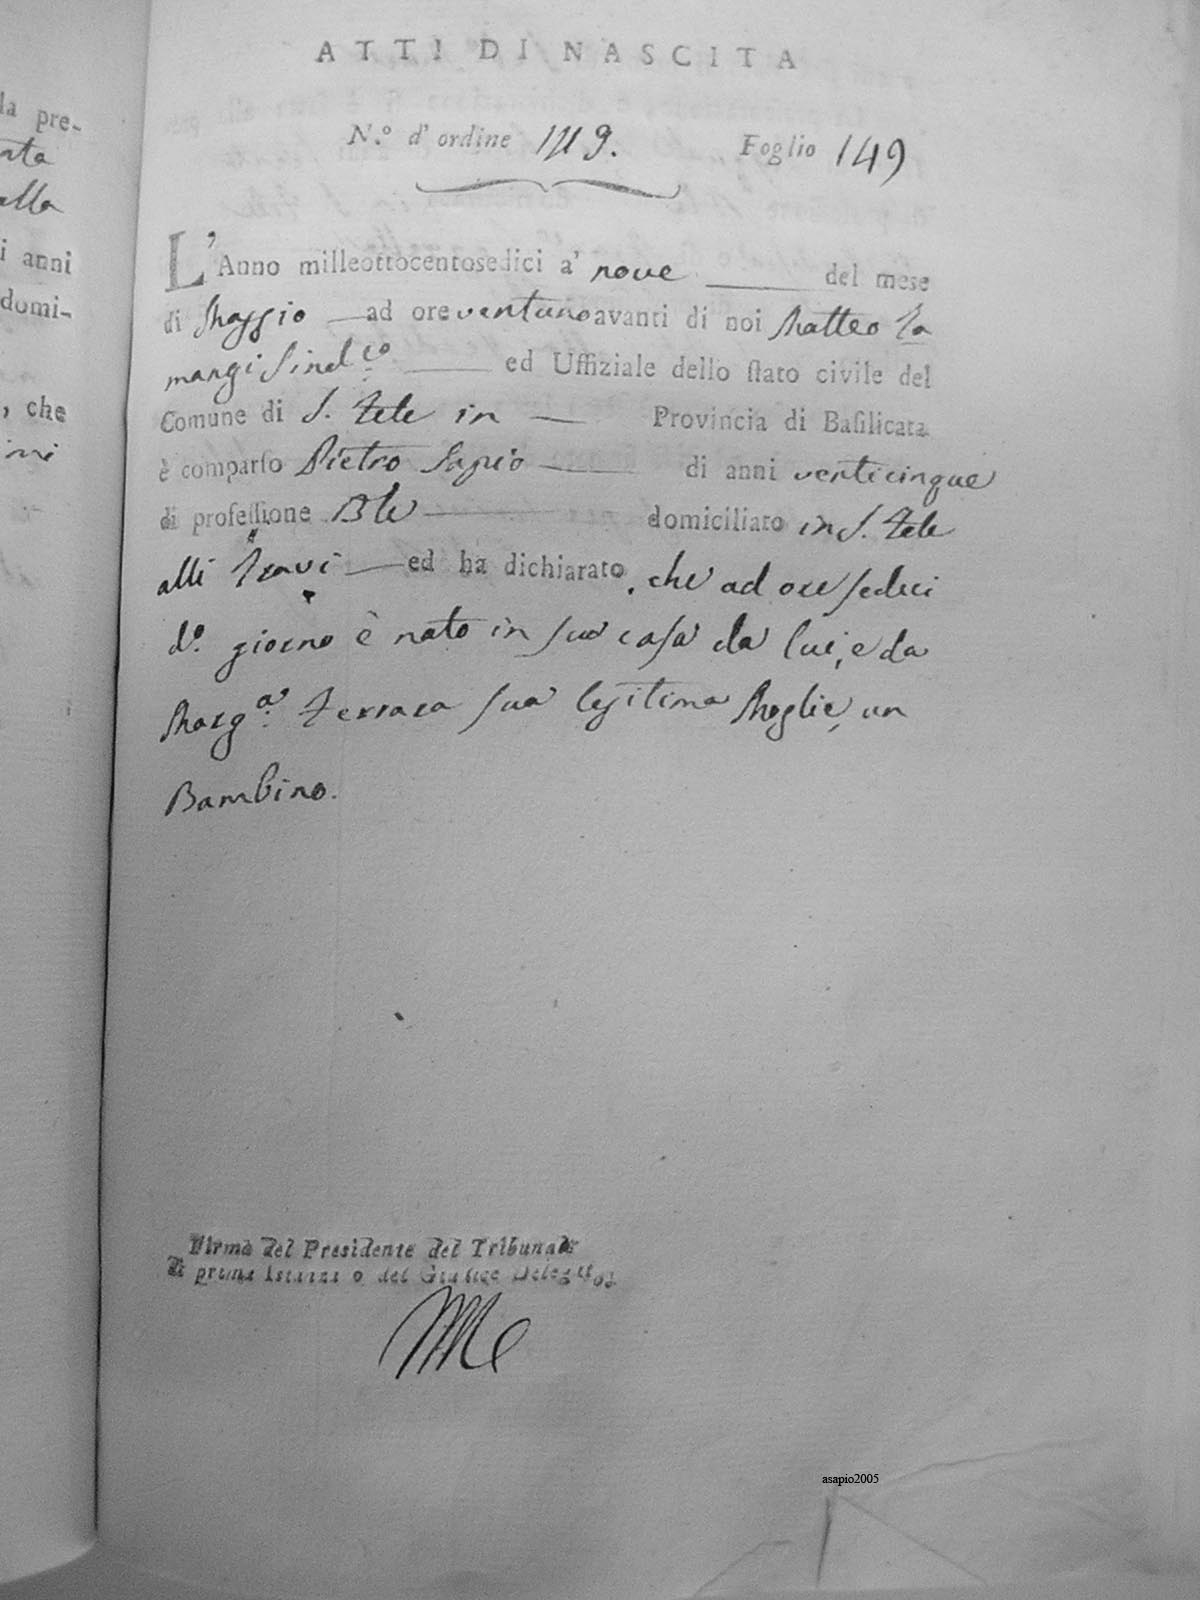 la pre-
nta
alla
i anni
domi-
, che
ATTI DI NASCITA
N.º d' ordine 149. Foglio 149
L'Anno milleottocentosedici a' nove del mese
di Maggio ad ore ventuno avanti di noi Matteo La
mangi Sind.co ed Uffiziale dello ſtato civile del
Comune di S. Fele in Provincia di Baſilicata
è comparſo Pietro Sapio di anni venticinque
di profeſſione Ble domiciliato in S. Fele
alli Travi ed ha dichiarato, che ad ore sedici
d.º giorno è nato in sua casa da lui, e da
Marg.a Ferrara sua legitima Moglie, un
Bambino.
Firma del Presidente del Tribunale
di prima Istanza o del Giudice Delegato.
asapio2005